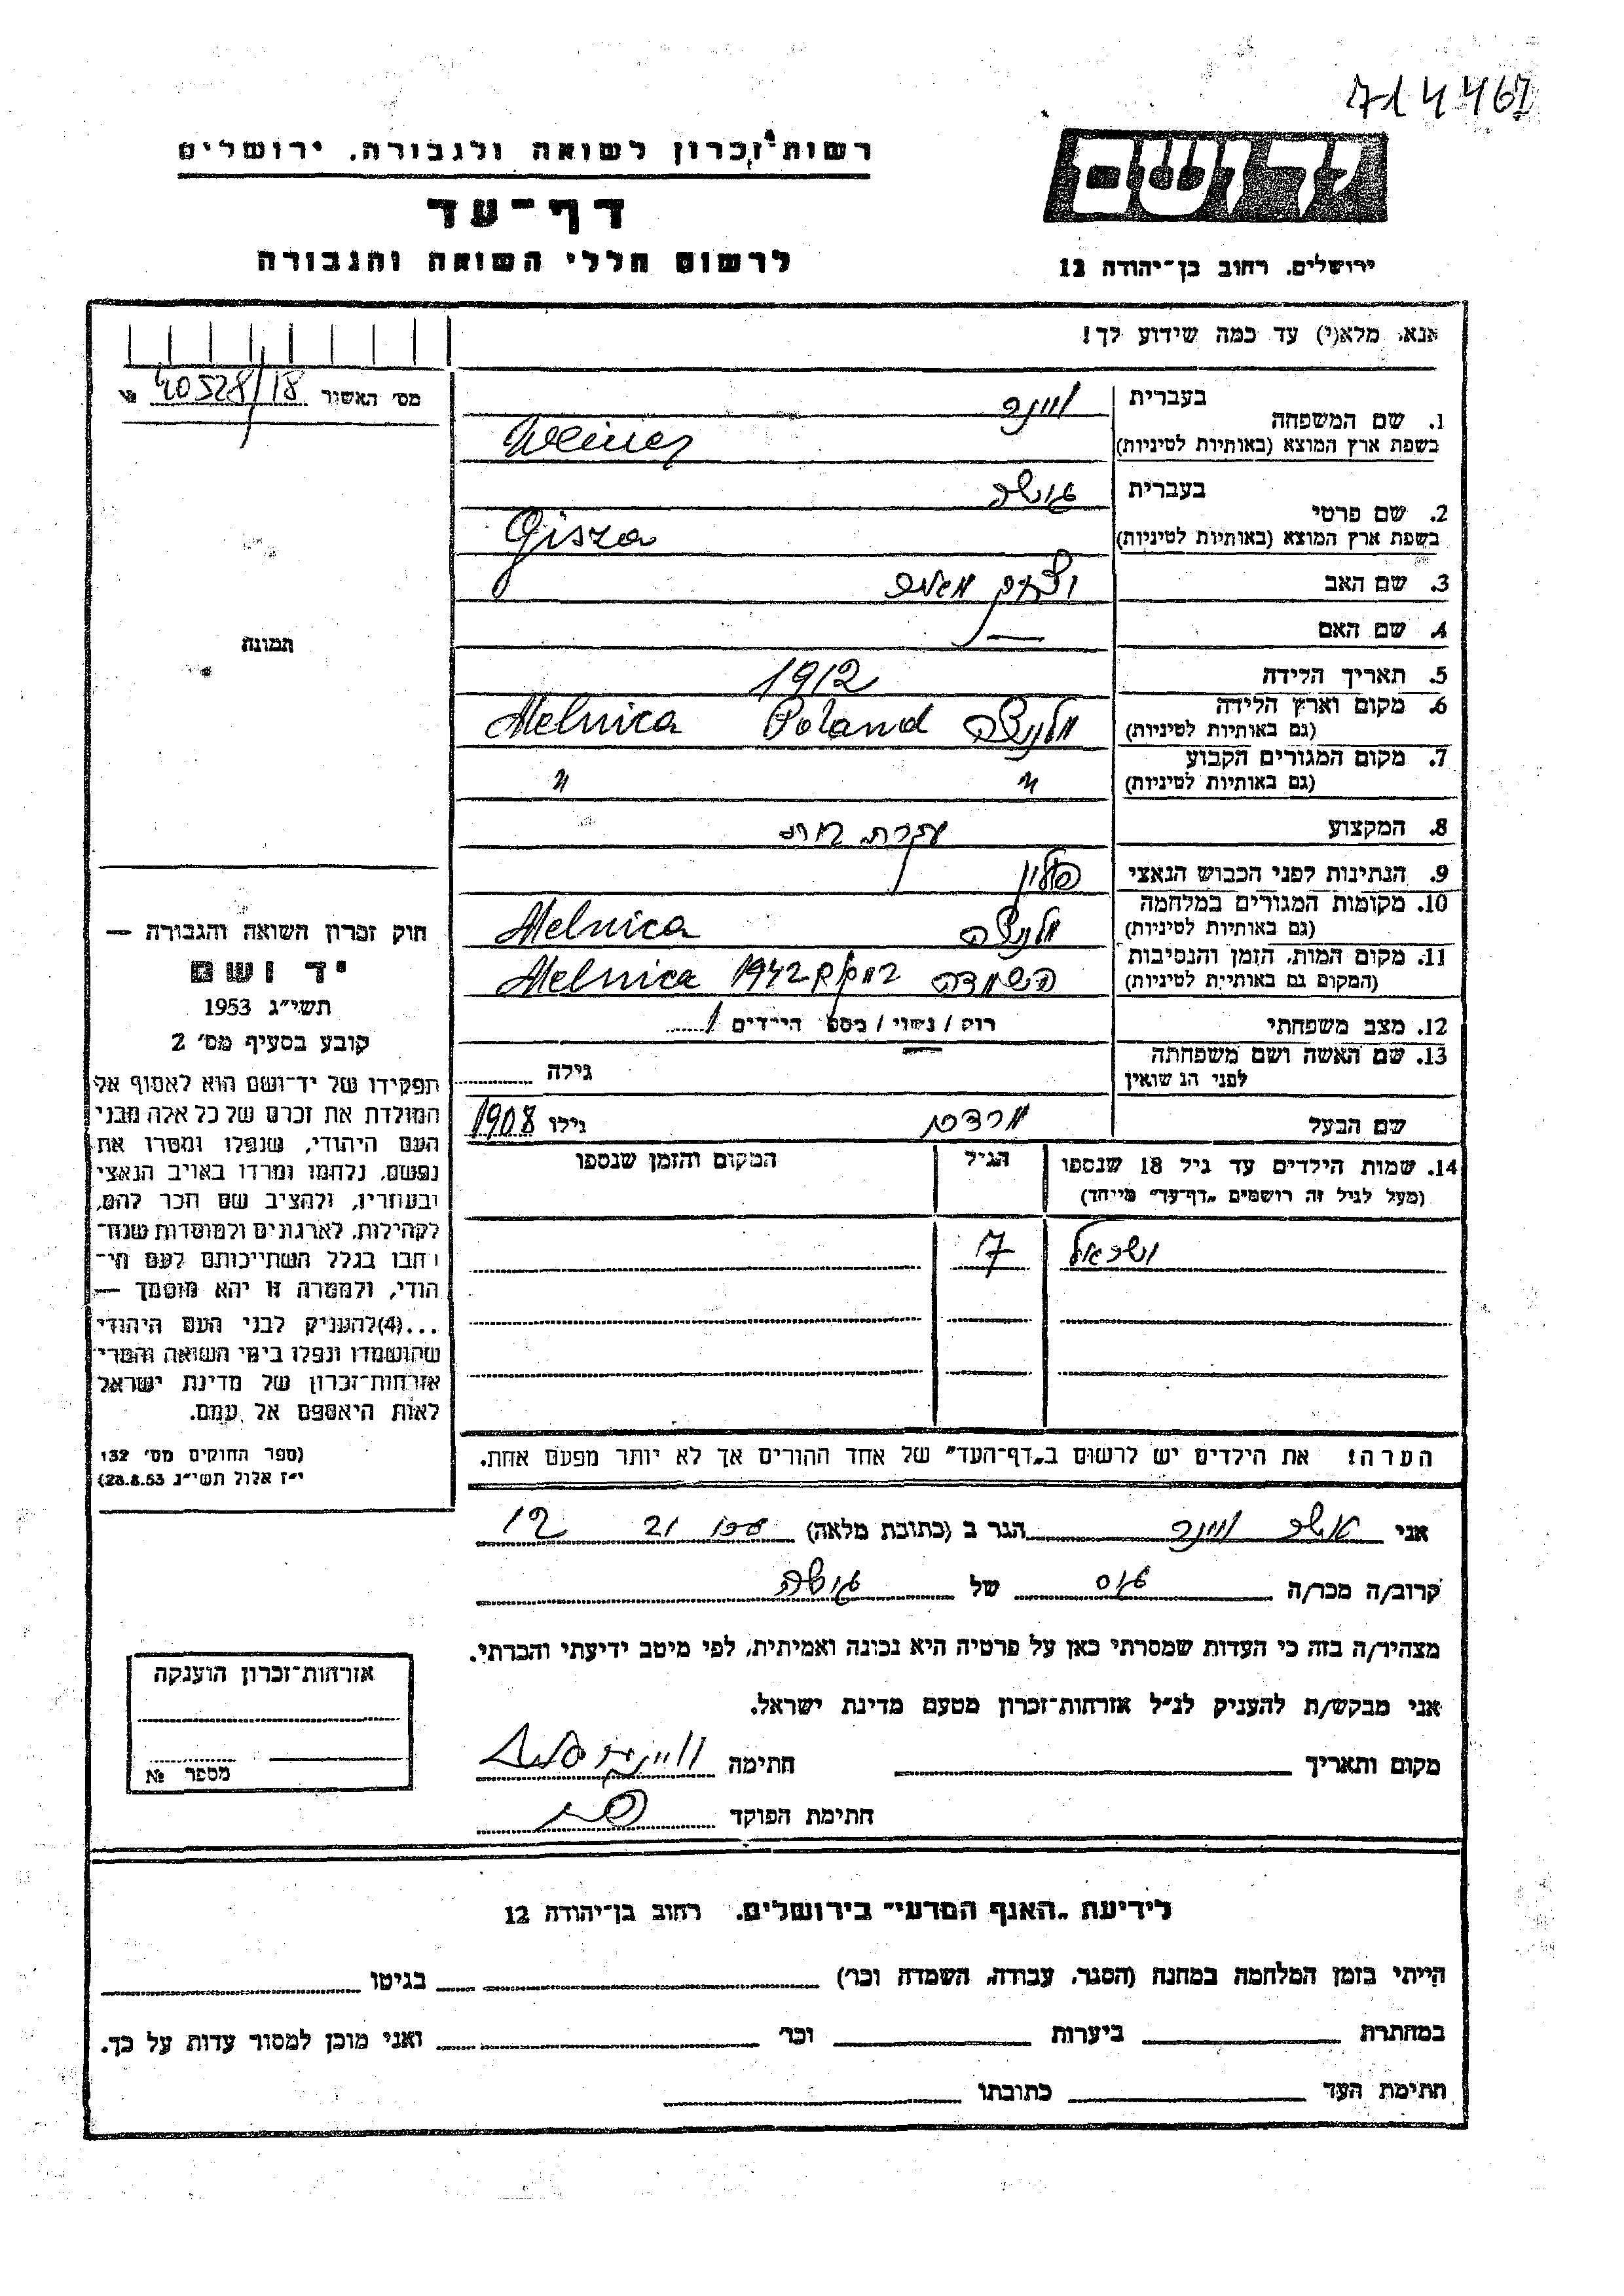 714461
רשות זכרון לשואה ולגבורה, ירושלים
דף-עד
לרשום חללי השואה והגבורה
יד ושם
ירושלים, רחוב בן-יהודה 12
אנא, מלא(י) עד כמה שידוע לך!
מס׳ האשור 40528/18 №
תמונה
1. שם המשפחה
בעברית ווינר
בשפת ארץ המוצא (באותיות לטיניות) Weiner
2. שם פרטי
בעברית גיזה
בשפת ארץ המוצא (באותיות לטיניות) Gisza
3. שם האב
4. שם האם —
5. תאריך הלידה 1912
6. מקום וארץ הלידה
(גם באותיות לטיניות) מלניצה Poland Melnica
7. מקום המגורים הקבוע
(גם באותיות לטיניות) " "
8. המקצוע עקרת בית
9. הנתינות לפני הכבוש הנאצי פולין
10. מקומות המגורים במלחמה
(גם באותיות לטיניות) מלניצה Melnica
11. מקום המות, הזמן והנסיבות
(המקום גם באותיות לטיניות) השמדה 1942 Melnica
12. מצב משפחתי רווק / נשוי / מספר הילדים 1
13. שם האשה ושם משפחתה
לפני הנישואין גילה
שם הבעל מרדכי גילו 1908
14. שמות הילדים עד גיל 18 שנספו
(מעל לגיל זה רושמים „דף-עד״ מייחד)
הגיל
המקום והזמן שנספו
ישראל 7
הערה! את הילדים יש לרשום ב„דף-העד״ של אחד ההורים אך לא יותר מפעם אחת.
חוק זכרון השואה והגבורה —
יד ושם
תשי״ג 1953
קובע בסעיף מס׳ 2
תפקידו של יד-ושם הוא לאסוף אל
המולדת את זכרם של כל אלה מבני
העם היהודי, שנפלו ומסרו את
נפשם, נלחמו ומרדו באויב הנאצי
ובעוזריו, ולהציב שם וזכר להם,
לקהילות, לארגונים ולמוסדות שנח-
רבו בגלל השתייכותם לעם הי-
הודי, ולמטרה זו יהא מוסמך —
...(4)להעניק לבני העם היהודי
שהושמדו ונפלו בימי השואה והמרי
אזרחות-זכרון של מדינת ישראל
לאות היאספם אל עמם.
(ספר החוקים מס׳ 132
י״ז אלול תשי״ג 28.8.53)
אני ווינר הגר ב (כתובת מלאה) 21
קרוב/ה מכר/ה גיס של גיזה
מצהיר/ה בזה כי העדות שמסרתי כאן על פרטיה היא נכונה ואמיתית, לפי מיטב ידיעתי והכרתי.
אני מבקש/ת להעניק לנ״ל אזרחות-זכרון מטעם מדינת ישראל.
מקום ותאריך חתימה
חתימת הפוקד
אזרחות-זכרון הוענקה
מספר №
לידיעת „האגף המדעי״ בירושלים, רחוב בן-יהודה 12
הייתי בזמן המלחמה במחנה (הסגר, עבודה, השמדה וכו׳) בגיטו
במחתרת ביערות וכו׳ ואני מוכן למסור עדות על כך.
חתימת העד כתובתו